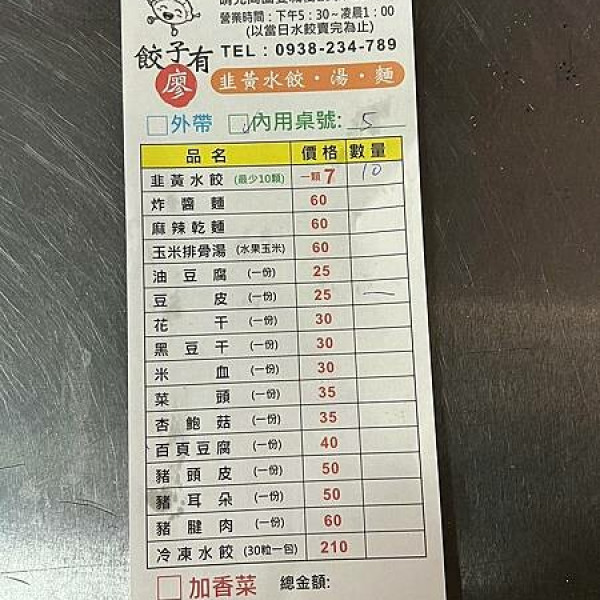 營業時間：下午5：30～凌晨1：00
(以當日水餃賣完為止)
餃子有廖
TEL：0938-234-789
韭黃水餃·湯·麵
外帶 內用桌號: 5
品名 價格 數量
韭黃水餃 (最少10顆) 一顆7 10
炸醬麵 60
麻辣乾麵 60
玉米排骨湯 (水果玉米) 60
油豆腐 (一份) 25
豆皮 (一份) 25 一
花干 (一份) 30
黑豆干 (一份) 30
米血 (一份) 30
菜頭 (一份) 35
杏鮑菇 (一份) 35
百頁豆腐 (一份) 40
豬頭皮 (一份) 50
豬耳朵 (一份) 50
豬腱肉 (一份) 60
冷凍水餃 (30粒一包) 210
加香菜 總金額: